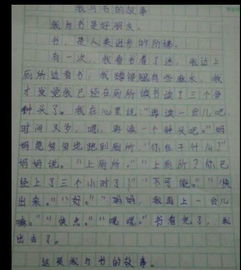 我与书的故事
我与书是好朋友。
书，是人类进步的阶梯。
有一次，我看书看了迷，我边上
厕所边看书，我蹲得腿都麻木，我
才发觉我已经在厕所里读了三个多
钟头了。我在心里说：“再读一会儿吧，
时间又多，嗯，再读一个钟头吧。”妈
妈急匆匆地赶到厕所，“你在干什么？”
妈妈说。“上厕所。”“上厕所？你已
经上了三个小时了！”“不可能。”“快
出来。”“好。”“妈妈，我再上一会儿
嘛。”“快点。”“嗯嗯。”书看完了，我
出去了。
这是我与书的故事。